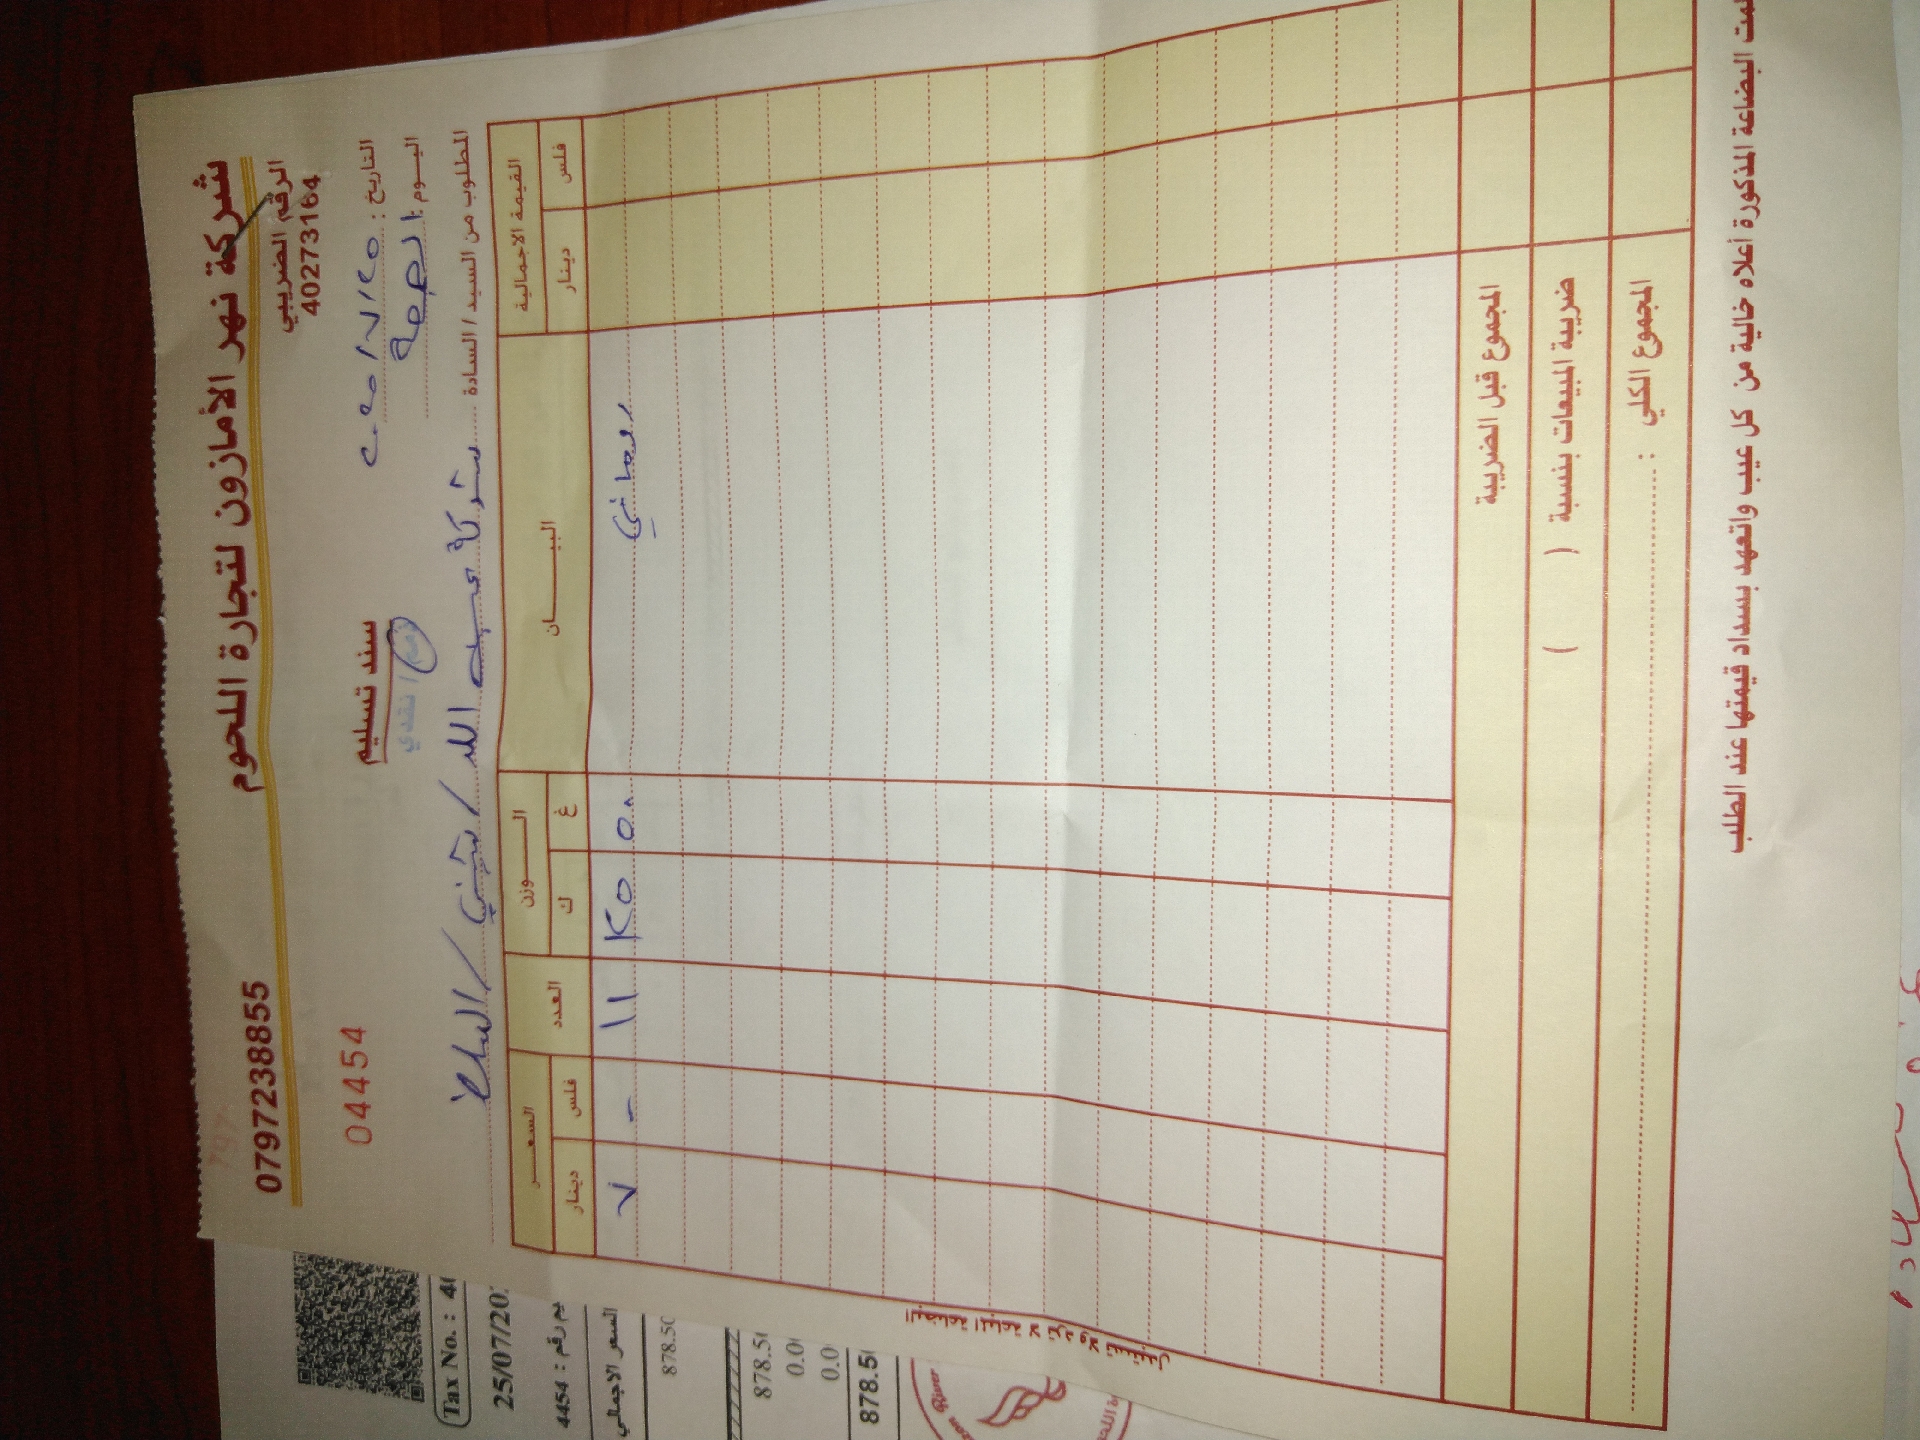 شركة نهر الأمازون لتجارة اللحوم
0797238855
الرقم الضريبي
40273164
التاريخ : ٢٥/٧/٢٠٢٥
سند تسليم
04454
اليـوم : الجمعة
ذمم / نقدي
المطلوب من السيد / السادة شركة عبد الله /
القيمة الاجمالية
البيـــــــان
الـــــوزن
العدد
السعـــر
فلس
دينار
غ
ك
فلس
دينار
روماني
٥٠٠
١٢٥
١١
-
٧
المجموع قبل الضريبة
ضريبة المبيعات بنسبة ( )
المجموع الكلي :
البضاعة المباعة لا ترد ولا تستبدل
البضاعة المذكورة أعلاه خالية من كل عيب واتعهد بسداد قيمتها عند الطلب
Tax No. : 4
25/07/20
رقم : 4454
السعر الاجمالي
878.50
878.5
0.0
0.0
878.5
River